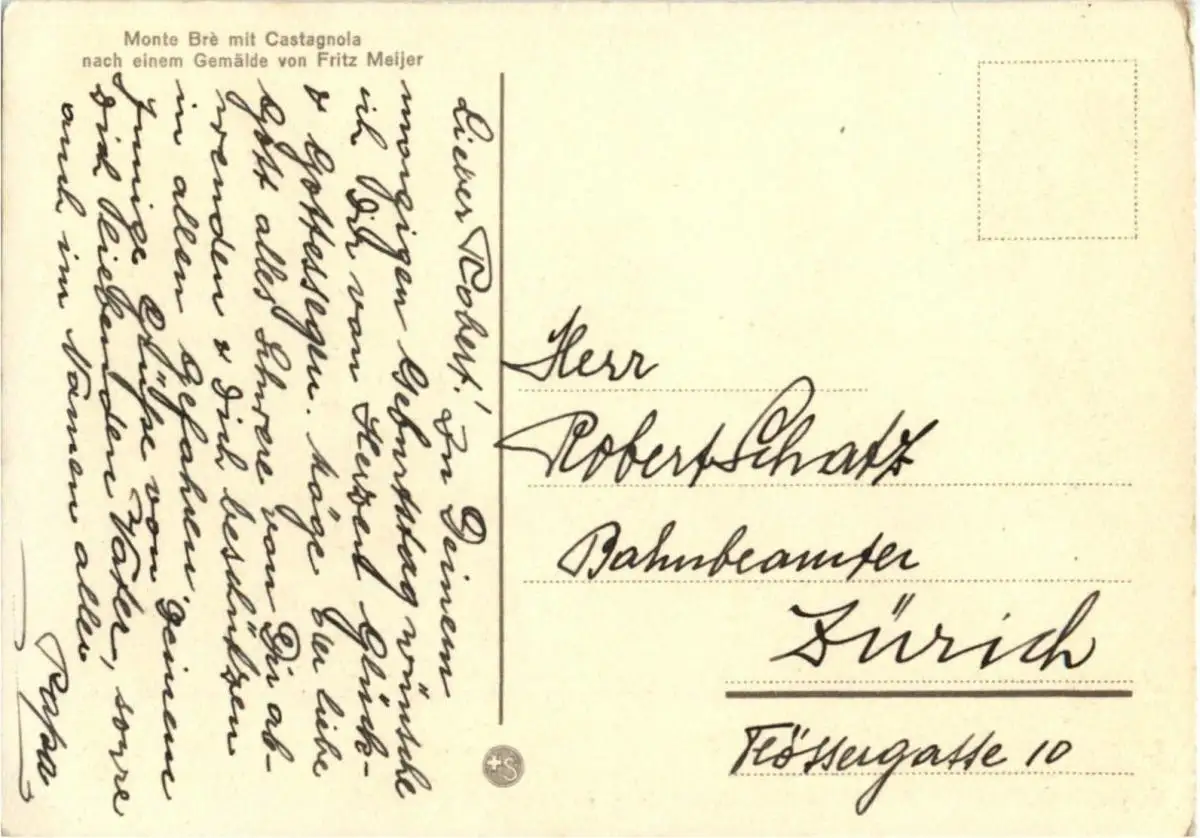 Monte Brè mit Castagnola
nach einem Gemälde von Fritz Meijer
Lieber Robert! Zu Deinem
morgigen Geburtstag wünsche
ich Dir von Herzen Glück-
& Gottessegen. Möge der liebe
Gott alles Schwere von Dir ab-
wenden & Dich beschützen
in allen Gefahren. Deinem
Innige Grüße von
Dich liebenden Vater, sowie
auch im Namen aller
Papa
Herr
Robert Schatz
Bahnbeamter
Zürich
Flössergasse 10
+S